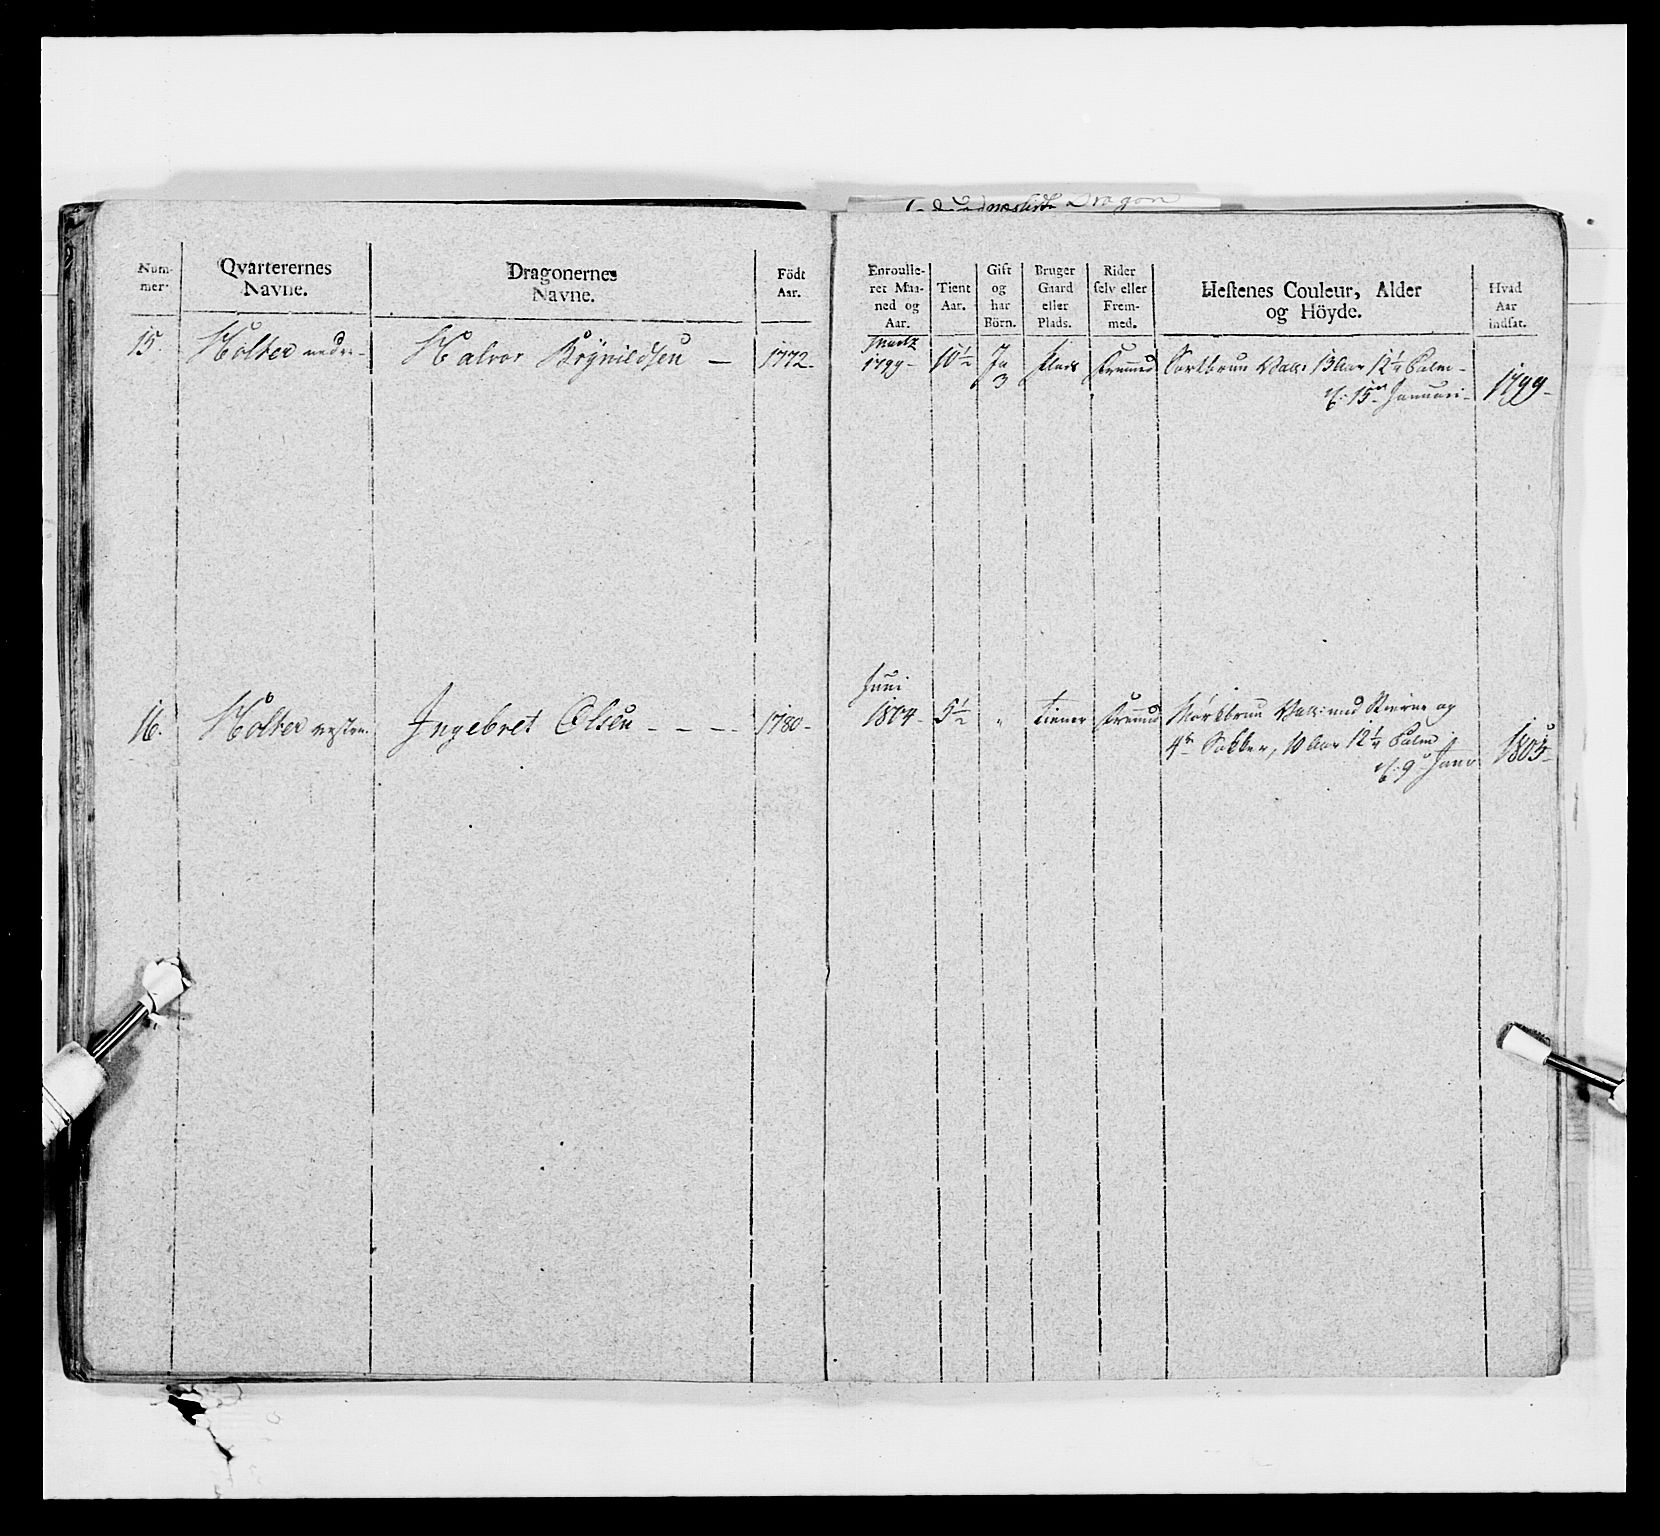 Dragon
Num-
mer.
Qvarterernes
Navne.
Dragonernes
Navne.
Födt
Aar.
Enroulle-
ret Maa-
ned og
Aar.
Tient
Aar.
Gift
og
har
Börn.
Bruger
Gaard
eller
Plads.
Rider
selv eller
Frem-
med.
Hestenes Couleur, Alder
og Höyde.
Hvad
Aar
indsat.
15. Holter nedre- Halvor Brynildsen — 1772- Martz
1799- 10½ Ja
3 Plads Fremmed Sortbrun Vall: 13 Aar 12¼ Palm-
15de Januari- 1799-
16. Holter vestre. Ingebret Olsen - - - - 1780- Juni
1804- 5½ " tiener Fremmed Mörkbrun Vall: med Stierne og
4re Sokker, 10 Aar 12¼ Palm
9 Janr 1805-